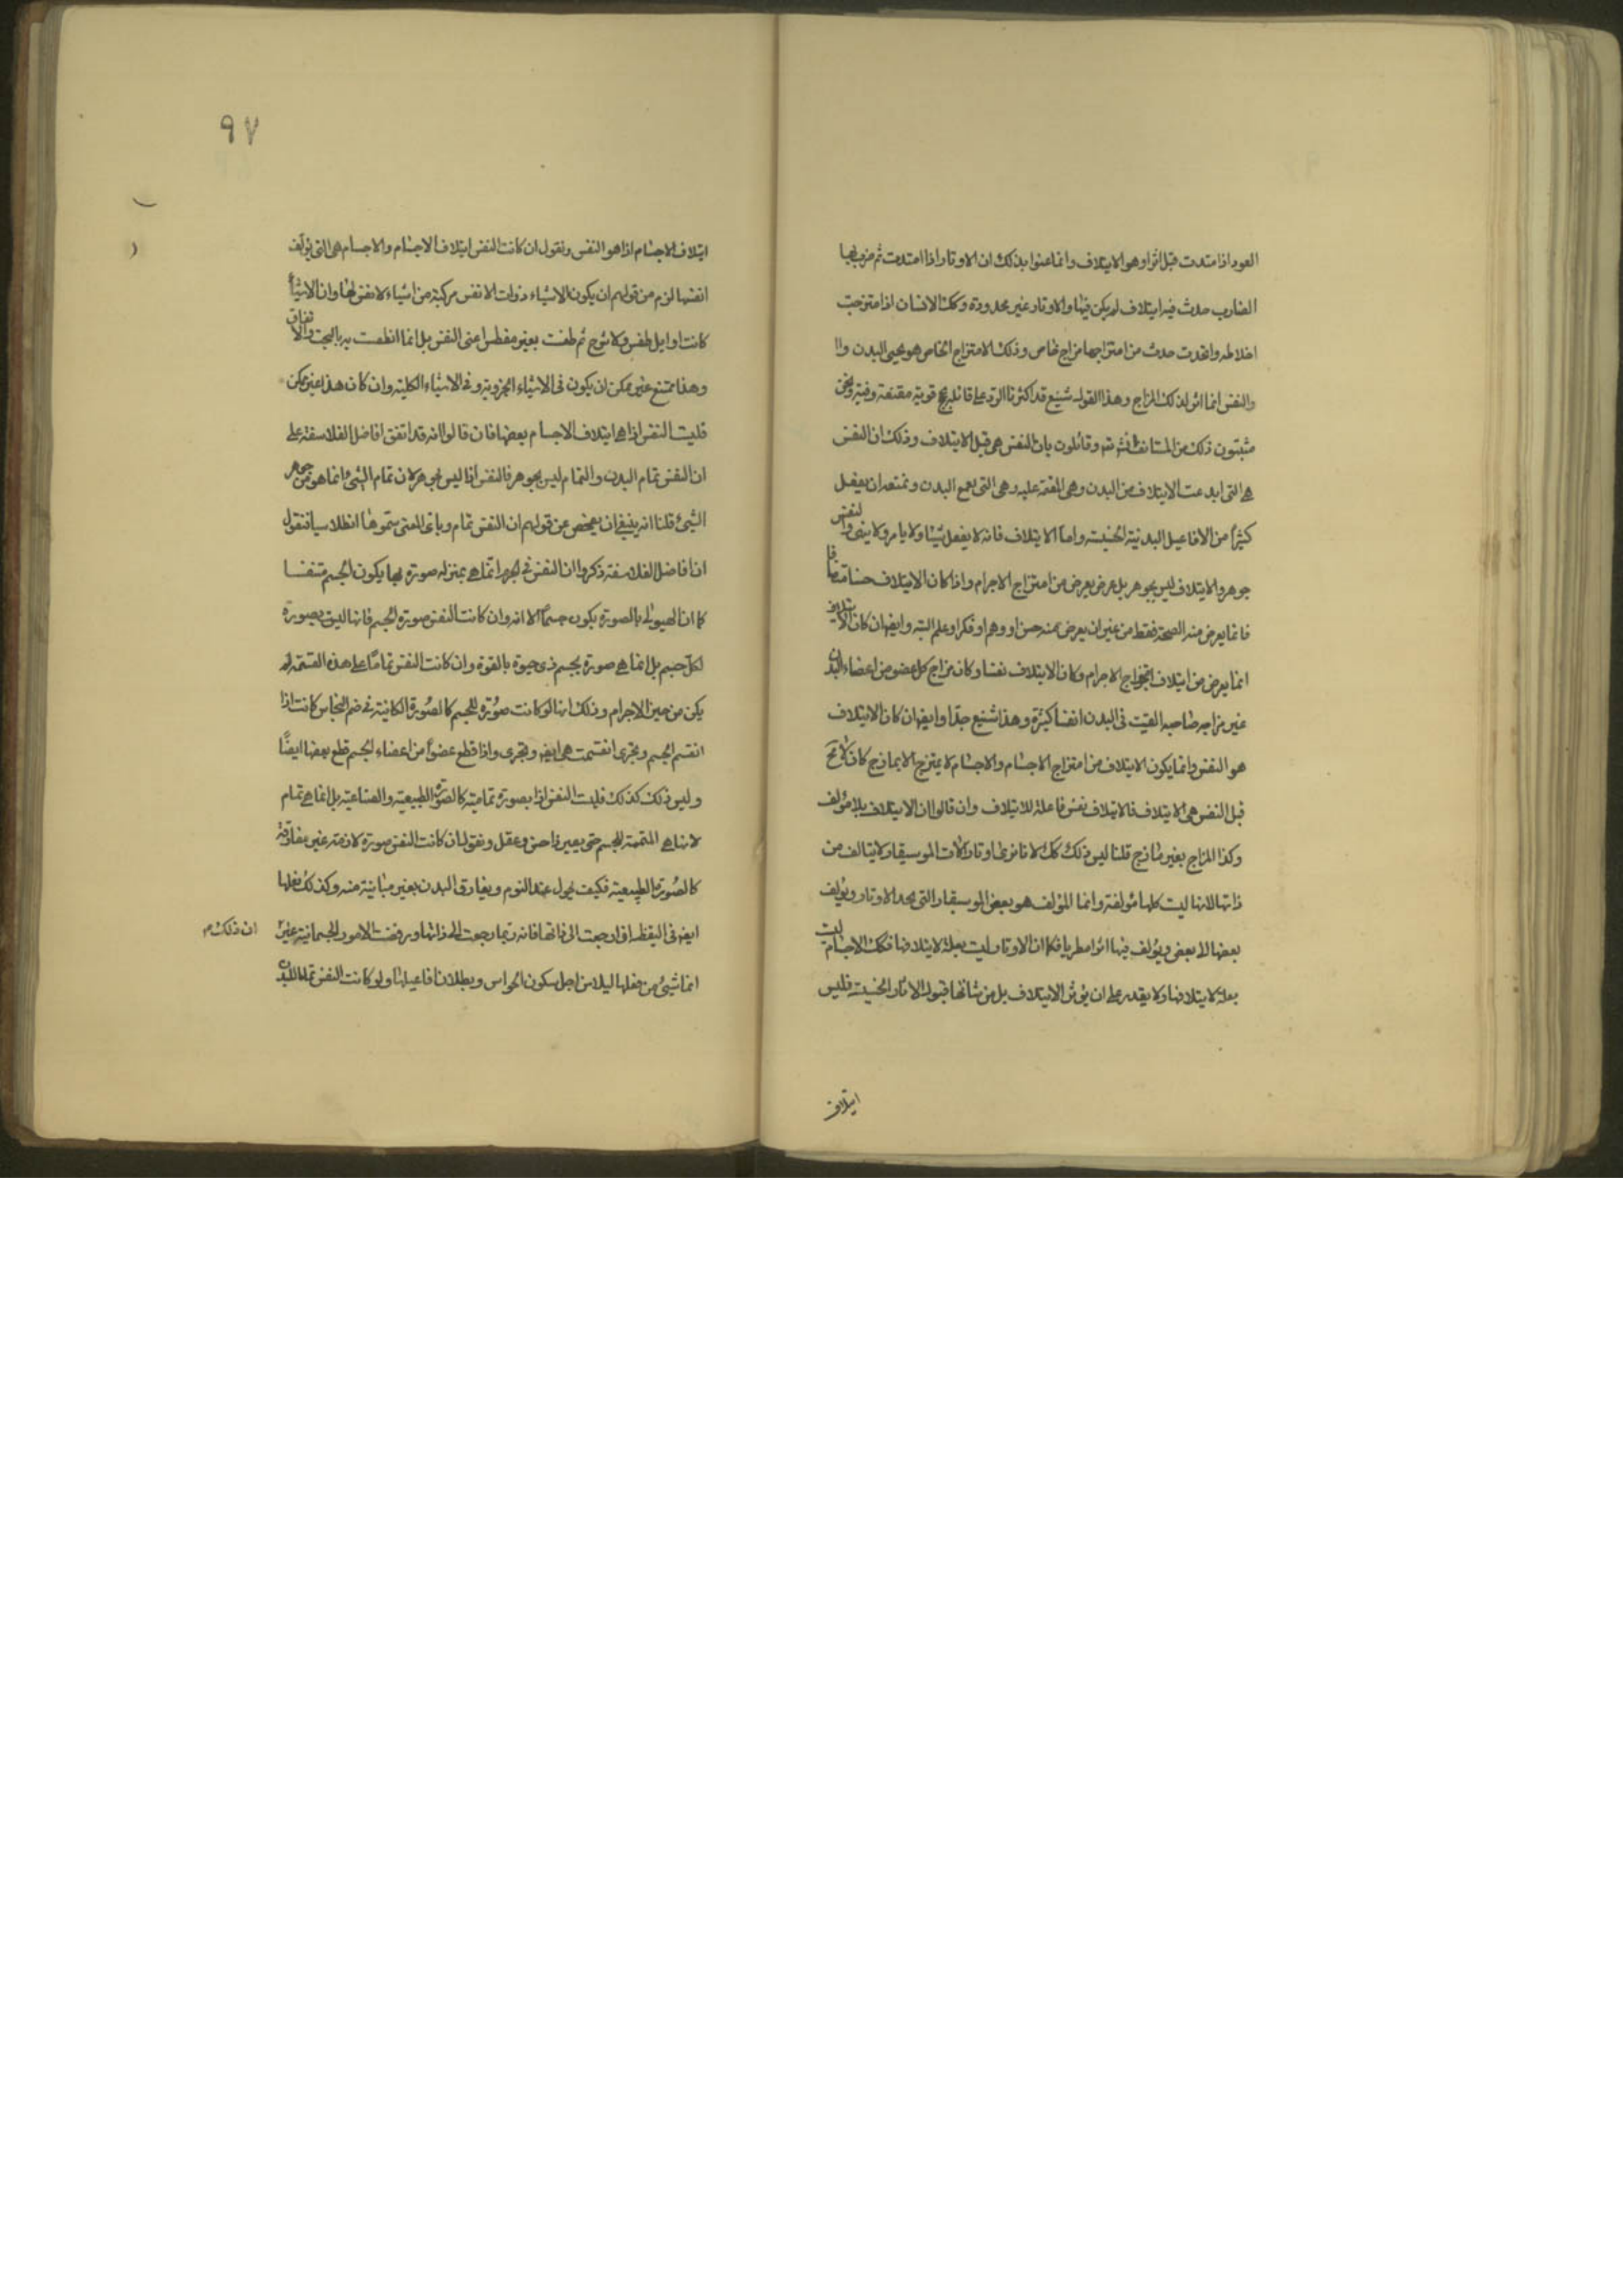 العود اذا امتدت قبل اثرا وهو الايتلاف وانما عنوا بذلك ان الاوتار اذا امتدت ثم ضرب بها
الضارب حدث فيه ايتلاف لم يكن فيها والاوتار غير محدودة وكك الانسان اذا امتزجت
اخلاطه واتحدت حدث من امتزاجها مزاج خاص وذلك الامتزاج الخاص هو يحيى البدن وا
والنفس انما اثر لذلك المزاج وهذا القول شنيع قد اكثرنا الرد على قائليه بحج قوية مقنعة ونحن
مثبتون ذلك من المستانف انش تم وقائلون بان النفس هى قبل الايتلاف وذلك ان النفس
هى التى ابدعت الايتلاف من البدن وهى القيمة عليه وهى التى تقمع البدن وتمنعه ان يفعل
كثيرا من الافاعيل البدنية الحسية واما الايتلاف فانه لا يفعل شيئا ولا يامر ولا ينهى والنفس
جوهر والايتلاف ليس بجوهر بل عرض يعرض من امتزاج الاجرام واذا كان الايتلاف حسنا متقنا
فانما يعرض منه الصحة فقط من غير ان يعرض منه حس او وهم او فكر او علم البتة وايضا ان كان الايتلاف
انما يعرض من ايتلاف امتزاج الاجرام وكان الايتلاف نفسا وكان مزاج كل عضو من اعضاء البدن
غير مزاج صاحبه القيت فى البدن انفسا كثيرة وهذا شنيع جدا وايضا ان كان الايتلاف
هو النفس وانما يكون الايتلاف من امتزاج الاجسام والاجسام لا يمتزج الا بمازج كان لا مح
قبل النفس هى الايتلاف فالايتلاف نفس فاعلة للايتلاف وان قالوا ان الايتلاف بلا مؤلف
وكذا المزاج بغير مازج قلنا ليس ذلك كك لانا نرى اوتار الات الموسيقار لا يتالف من
ذاتها لانها ليست كلها مؤلفة وانما المؤلف هو بعض الموسيقار التى يمد الاوتار ويؤلف
بعضها الا بعض ويؤلف فيها اثرا مطربا فكما ان الاوتار ليست بعلة لايتلافها فكك الاجسام ليست
بعلة لايتلافها ولا يقدر على ان يؤثر الايتلاف بل من شانها قبول الاثار الحسية فليس
ايتلاف
٩٧
ايتلاف الاجسام اذا هو النفس ونقول ان كانت النفس ايتلاف الاجسام والاجسام هى التى يؤلف
انفسها لزم من قولهم ان يكون الاشياء ذوات الانفس مركبة من اشياء لا نفس لها وان الاشياء
كانت اوايل طقس ولا شرح ثم طقست بغير مطقس اعنى النفس بل انما انطقست به بالبخت والاتفاق
وهذا ممتنع غير ممكن ان يكون فى الاشياء الجزوية وفى الاشياء الكلية وان كان هذا غير ممكن
فليست النفس اذا هى ايتلاف الاجسام بعضها فان قالوا انه قد اتفق افاضل الفلاسفة على
ان النفس تمام البدن والتمام ليس بجوهر فالنفس اذا ليس بجوهر لان تمام الشئ انما هو من جوهر
الشئ قلنا انه ينبغى ان يفحص عن قولهم ان النفس تمام وباى المعنى سموها انطلاسيا فنقول
ان افاضل الفلاسفة ذكروا ان النفس فى الجرم انما هى بمنزلة صورة بها يكون الجسم متنفسا
كما ان الهيولى بالصورة يكون جسما الا انه وان كانت النفس صورة الجسم فانها ليست بصورة
لكل جسم بل انما هى صورة لجسم ذى حيوة بالقوة وان كانت النفس تماما على هذه الصفة لم
يكن من حيز الاجرام وذلك انها لو كانت صورة للجسم كالصورة الكائنة فى صنم النحاس كانت اذا
انقسم الجسم وتجزى انقسمت هى ايضا وتجزى واذا قطع عضو من اعضاء الجسم قطع بعضها ايضا
وليس ذلك كذلك فليست النفس اذا بصورة تمامية كالصورة الطبيعية والصناعية بل انما هى تمام
لانها هى المتممة للجسم حتى يصير ذا حس وعقل ونقول ان كانت النفس صورة لازمة غير مفارقة
كالصورة الطبيعية فكيف يحول عند النوم ويفارق البدن بغير مباينة منه وكذلك فعلها
ايضا فى اليقظة اذا رجعت الى ذاتها فانه ربما رجعت الى ذاتها ورفضت الامور الجسمانية غير ان ذلك م
انما شئ من فعلها ليلا من اجل سكون الحواس وبطلان افاعيلها ولو كانت النفس تماما للبدن